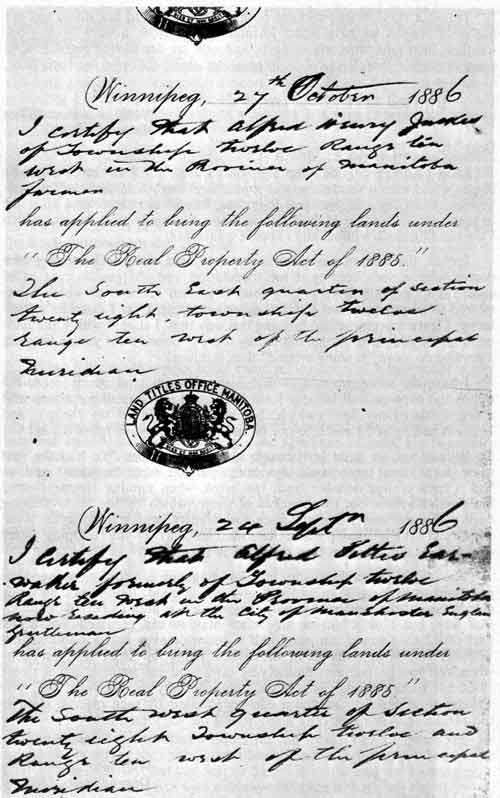 Winnipeg, 27th October 1886
I certify that Alfred Henry
of Township twelve Range ten
west in the Province of Manitoba
farmer
has applied to bring the following lands under
"The Real Property Act of 1885."
The South East quarter of section
twenty eight township twelve
range ten west of the principal
Meridian
LAND TITLES OFFICE MANITOBA.
Winnipeg, 24 Septr 1886
I certify that Alfred Ear-
-waker formerly of Township twelve
Range ten west in the Province of Manitoba
now residing at the City of Manchester
Gentleman
has applied to bring the following lands under
"The Real Property Act of 1885"
The South West Quarter of Section
twenty eight Township twelve and
Range ten west of the principal
Meridian